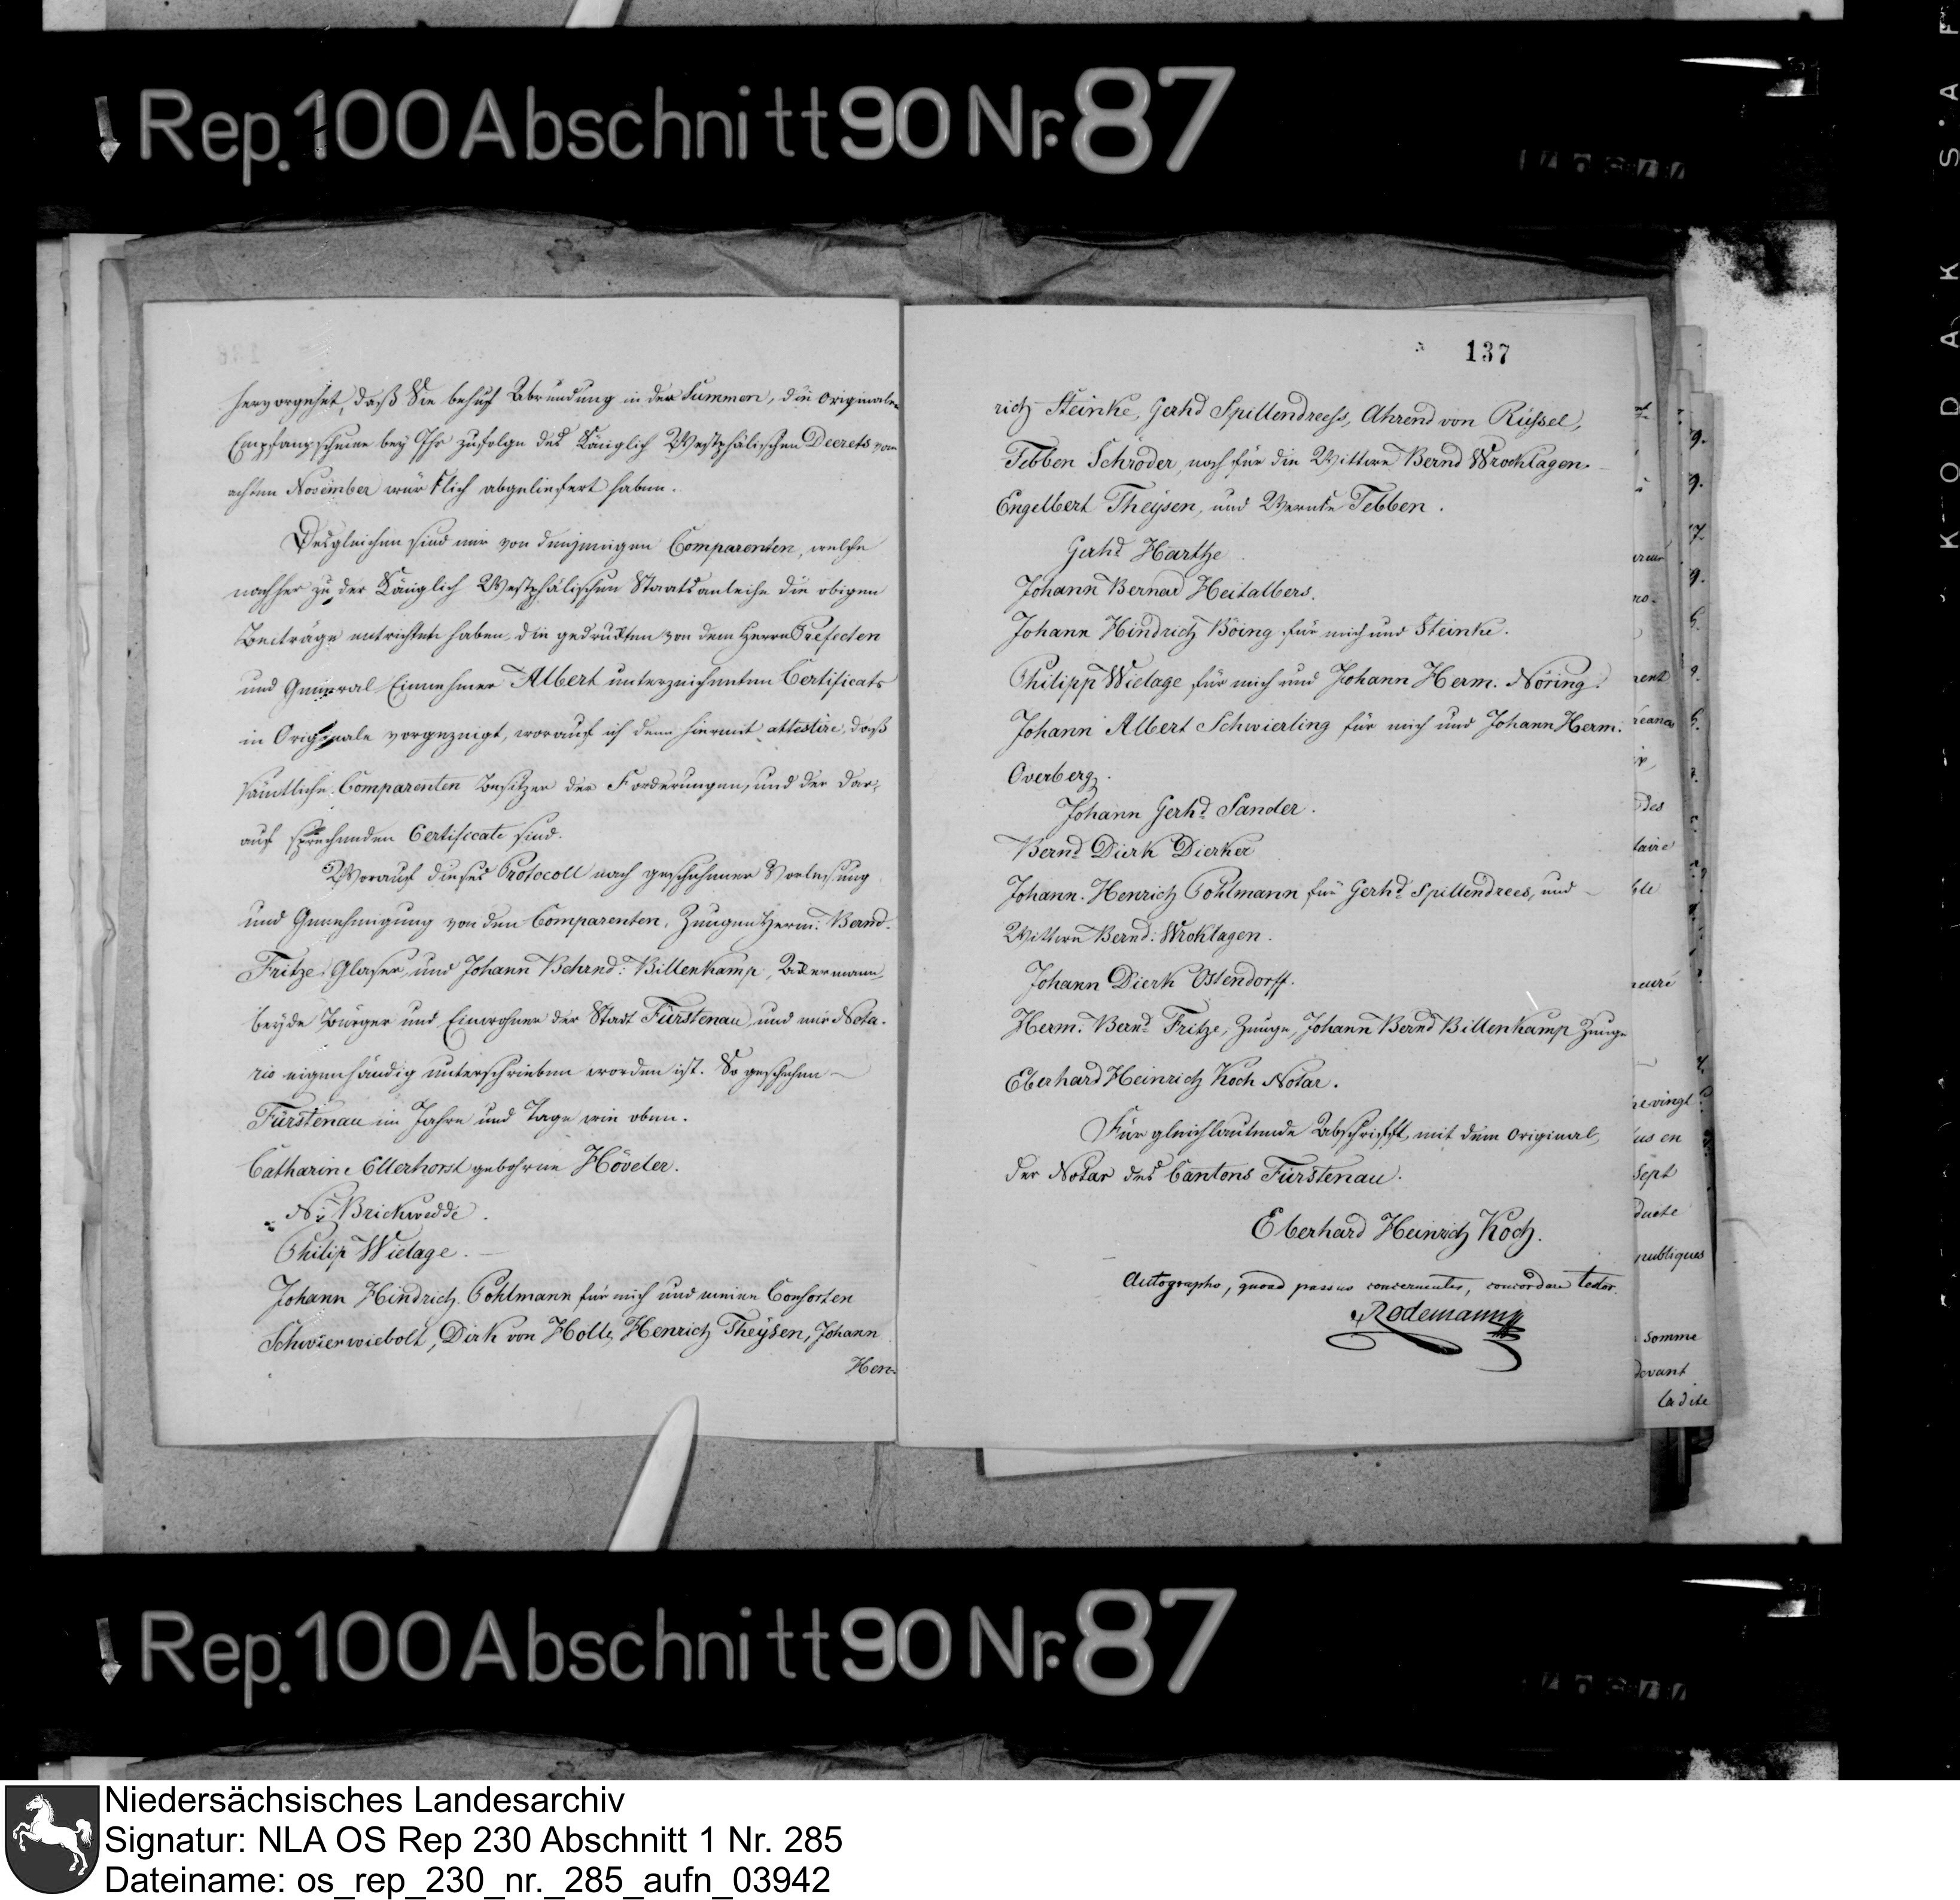 Rep. 100 Abschnitt 90 Nr. 87
hervorgehet, daß Sie behuf Abrundung in der Summen, die originalen
Empfangscheine bey Ihr zufolge des Königlich Westphälischen Decrets vom
achten November würklich abgeliefert haben.
Desgleichen sind mir von denjenigen Comparenten, welche
nachher zu der Königlich Westphälischen Staatsanleihe die obigen
Beiträge entrichtet haben, die gedruckten von dem Herrn Prefecten
und General Einnehmer Albert unterzeichneten Certificats
in Originale vorgezeigt, worauf ich denn hiermit attestire, daß
sämtliche Comparenten Besitzer der Forderungen, und der dar-
auf sprechenden Certificate sind.
Worauf dieses Protocoll nach geschehener Vorlesung
und Genehmigung von den Comparenten, Zeugen Herm: Bernd.
Fritze Glaser, und Johann Behrnd: Billenkamp, Ackermann,
beyde Bürger und Einwohner der Stadt Fürstenau, und mir Nota-
rio eigenhändig unterschrieben worden ist. So geschehen
Fürstenau im Jahre und Tage wie oben.
Catharine Ellerhorst gebohrne Höveler.
Brickwedde.
Philip Wielage.
Johann Hindrich Pohlmann für mich und meine Consorten
Schwierwiebolt, Dirk von Holle, Henrich Theÿsen, Johann
Hen-
137
rich Steinke, Gerhd Spillendreess, Ahrend von Rüssel,
Tebben Schröder, noch für die Wittwe Bernd Wrocklagen.
Engelbert Theÿsen, und Wernke Tebben.
Gerhd Hartke
Johann Bernard Heitalbers.
Johann Hindrich Böing für mich und Steinke.
Philipp Wielage für mich und Johann Herm. Nöring.
Johann Albert Schwierling für mich und Johann Herm.
Overberg.
Johann Gerhd Sander.
Bernd Dierk Dierker
Johann Henrich Pohlmann für Gerhd Spillendrees, und
Wittwe Bernd: Wroklagen.
Johann Dierk Ostendorff.
Herm. Bernd Fritze, Zeuge, Johann Bernd Billenkamp Zeuge
Eberhard Heinrich Koch Notar.
Für gleichlautende Abschrifft mit dem Original,
der Notar des Cantons Fürstenau.
Eberhard Heinrich Koch.
Autographo, quoad passus concernentes, concordare testor.
Rodemann
des
taire
vingt
us en
sept
publiques
somme
devant
ladite
Rep. 100 Abschnitt 90 Nr. 87
KODAK S.A F
Niedersächsisches Landesarchiv
Signatur: NLA OS Rep 230 Abschnitt 1 Nr. 285
Dateiname: os_rep_230_nr._285_aufn_03942